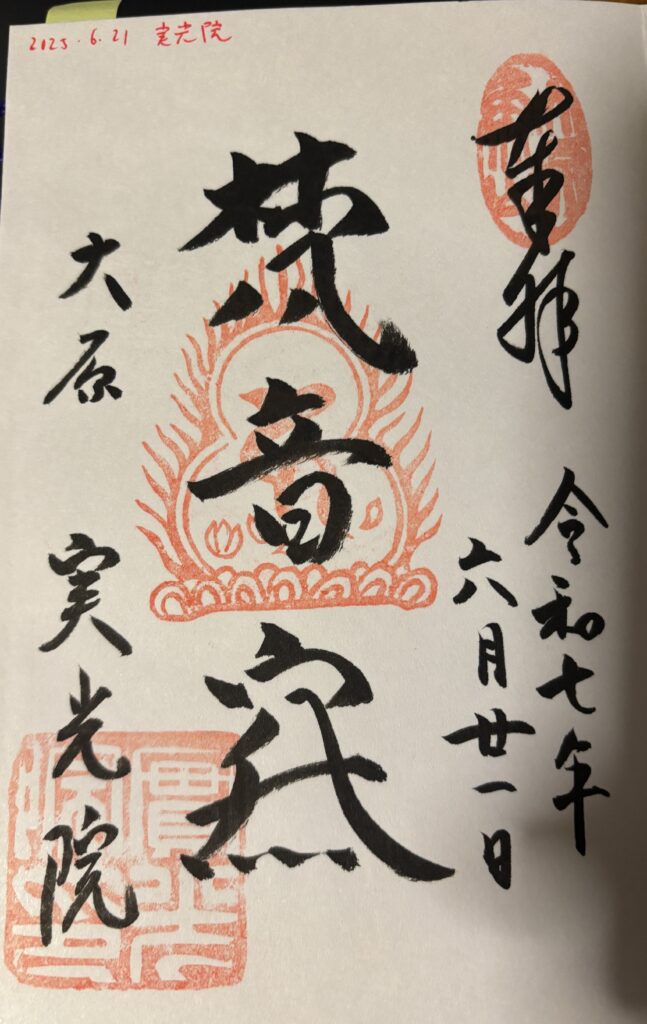 2025.6.21 実光院
奉拝
令和七年
六月廿一日
梵音
大原 実光院
實光院印